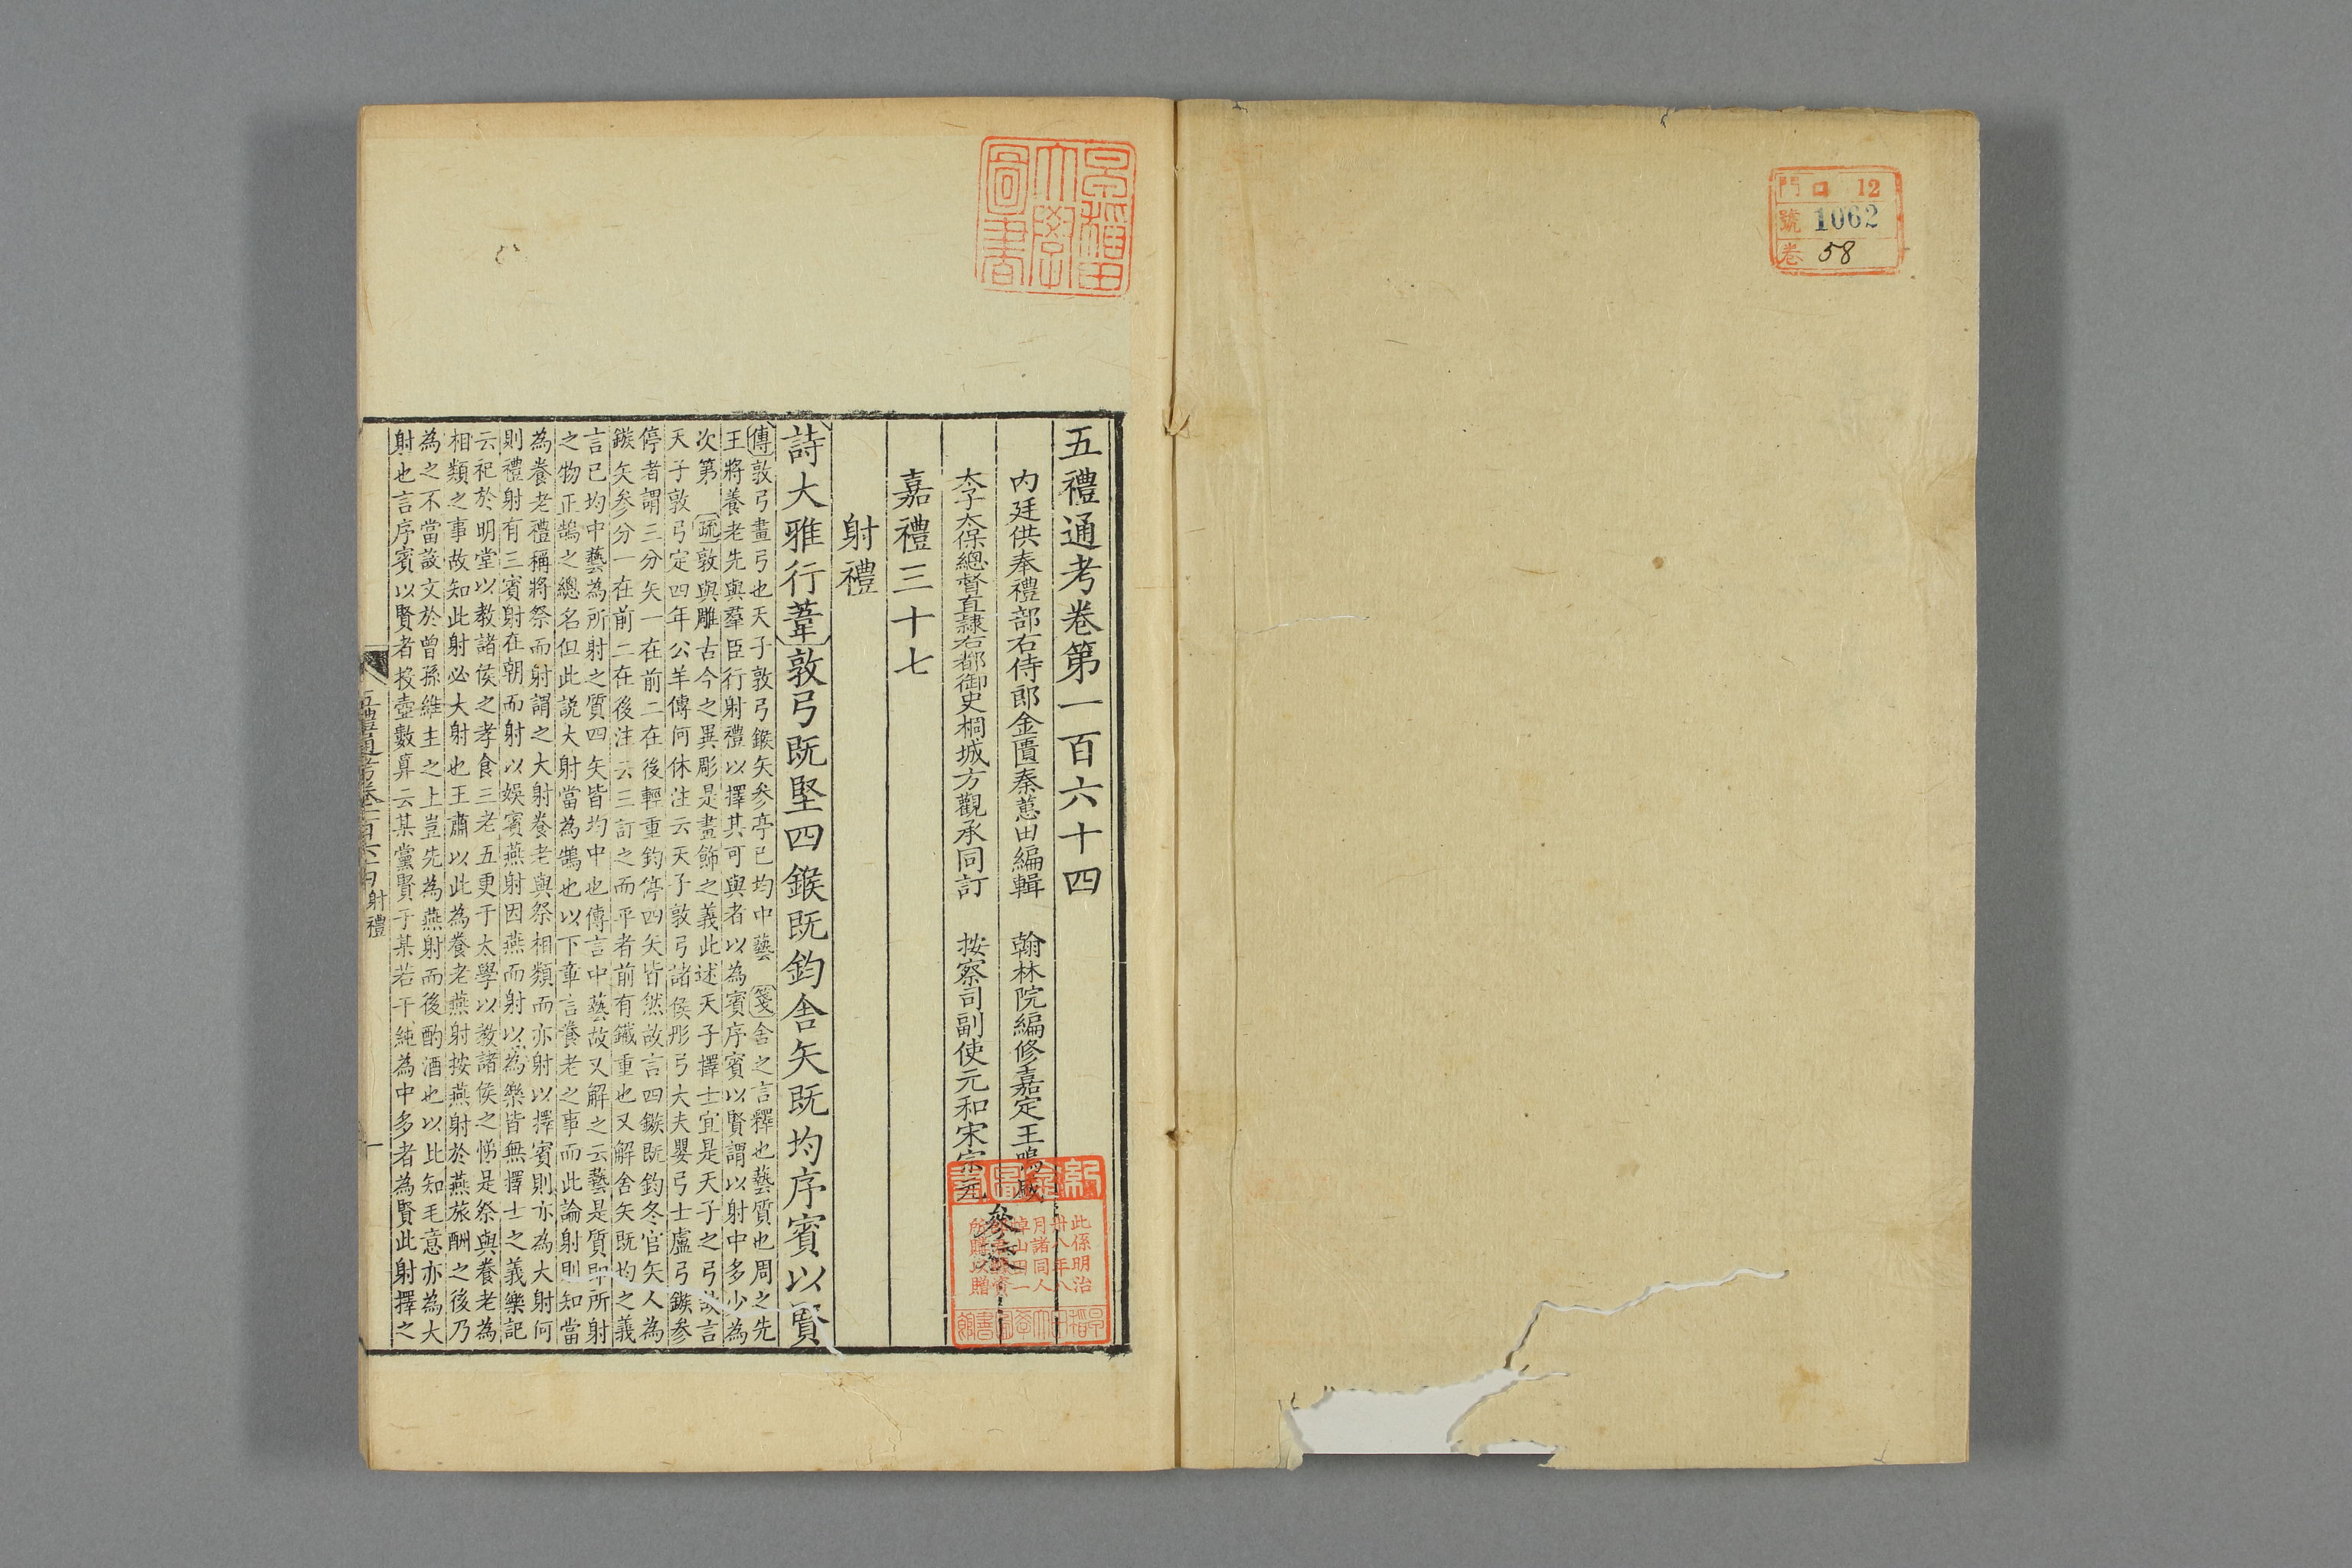 門 ロ 12
號 1062
卷 58
早稲田大學圖書
五禮通考卷第一百六十四
内廷供奉禮部右侍郎金匱秦蕙田編輯 翰林院編修嘉定王鳴盛
太子太保總督直隸右都御史桐城方觀承同訂 按察司副使元和宋宗元
參校
嘉禮三十七
射禮
詩大雅行葦敦弓既堅四鍭既鈞舍矢既均序賓以賢
傳敦弓畫弓也天子敦弓鍭矢參亭已均中藝 箋舍之言釋也藝質也周之先
王將養老先與羣臣行射禮以擇其可與者以為賓序賓以賢謂以射中多少為
次第 疏敦與雕古今之異彫是畫飾之義此述天子擇士宜是天子之弓故言
天子敦弓定四年公羊傳何休注云天子敦弓諸侯彤弓大夫嬰弓士盧弓鏃參
停者謂三分矢一在前二在後輕重鈞停四矢皆然故言四鏃既鈞冬官矢人為
鏃矢參分一在前二在後注云三訂之而平者前有鐵重也又解舍矢既均之義
言已均中藝為所射之質四矢皆均中也傳言中藝故又解之云藝是質即所射
之物正鵠之總名但此說大射當為鵠也以下章言養老之事而此論射則知當
為養老禮稱將祭而射謂之大射養老與祭相類而亦射以擇賓則亦為大射何
則禮射有三賓射在朝而射以娛賓燕射因燕而射以為樂皆無擇士之義樂記
云祀於明堂以教諸侯之孝食三老五更于太學以教諸侯之悌是祭與養老為
相類之事故知此射必大射也王肅以此為養老燕射按燕射於燕旅酬之後乃
為之不當設文於曾孫維主之上豈先為燕射而後酌酒也以此知毛意亦為大
射也言序賓以賢者投壺數算云某黨賢于某若干純為中多者為賢此射擇之
五禮通考卷一百六十四 射禮 一